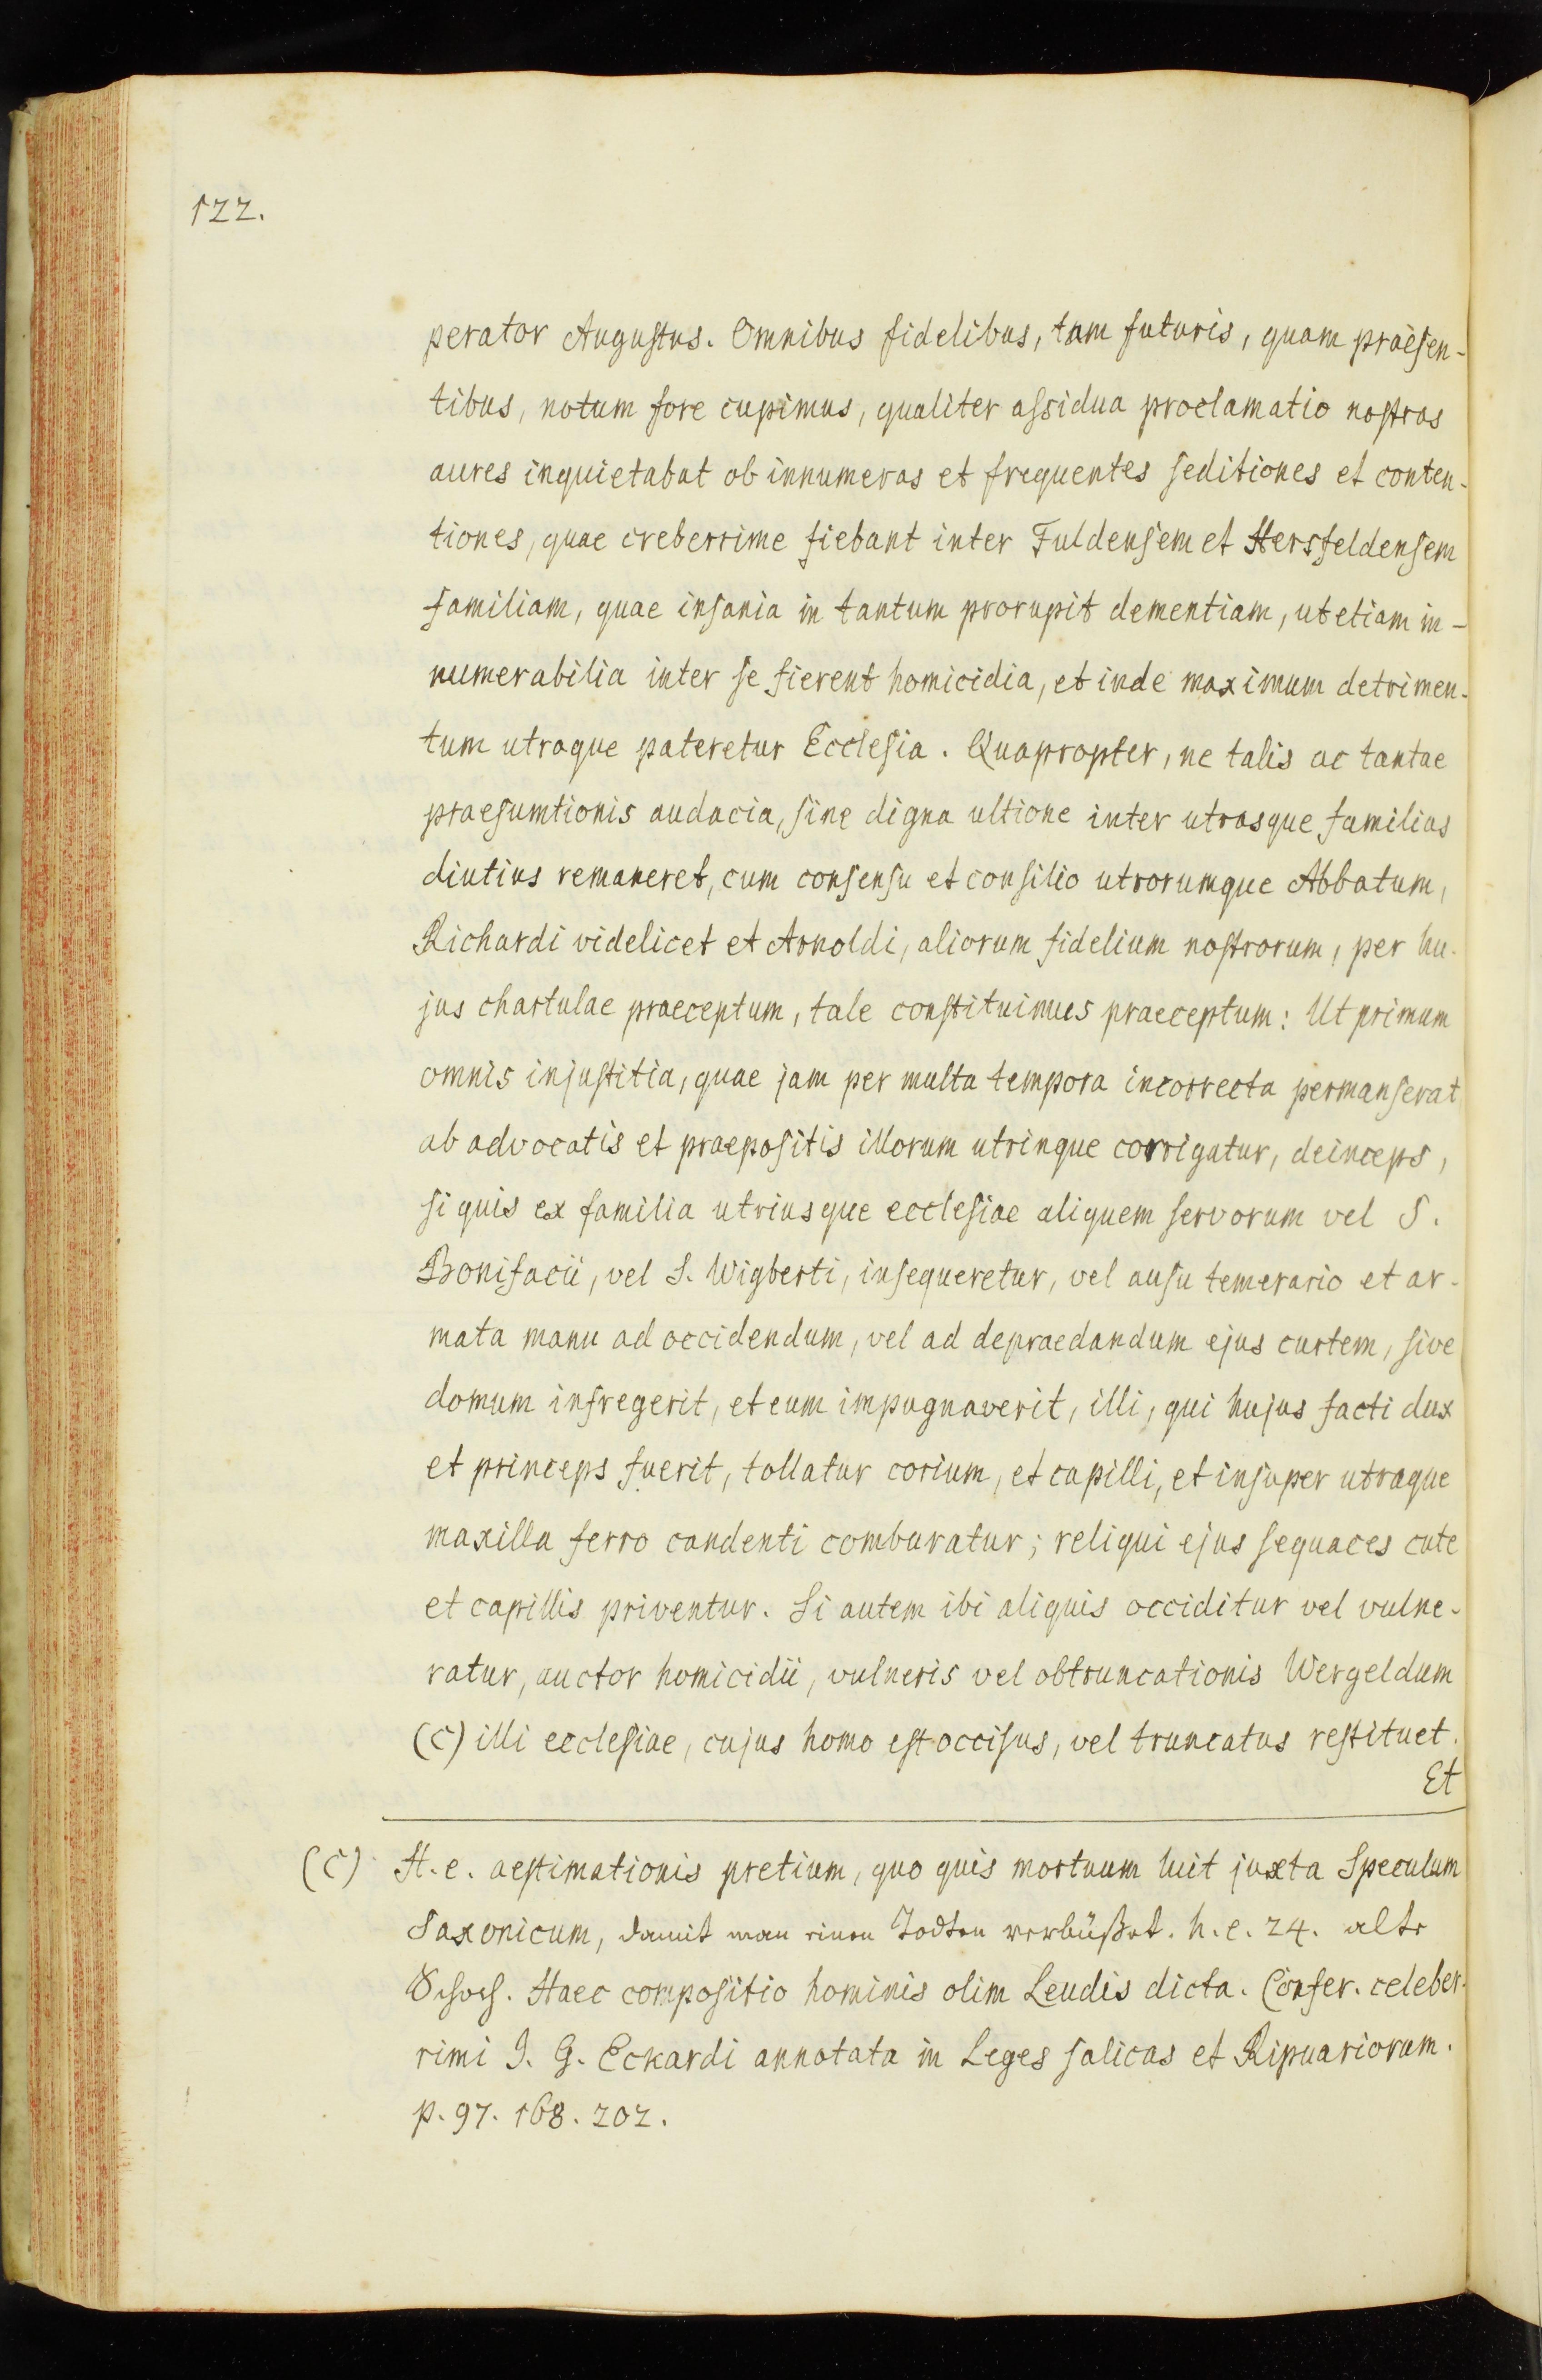 122.
perator Augustus. Omnibus fidelibus, tam futuris, quam praesen-
tibus, notum fore cupimus, qualiter assidua proclamatio nostras
aures inquietabat ob innumeras et frequentes seditiones et conten-
tiones, quae creberrime fiebant inter Fuldensem et Hersfeldensem
familiam, quae insania in tantum prorupit dementiam, ut etiam in-
numerabilia inter se fierent homicidia, et inde maximum detrimen-
tum utraque pateretur Ecclesia. Quapropter, ne talis ac tantae
praesumtionis audacia, sine digna ultione inter utrasque familias
diutius remaneret, cum consensu et consilio utrorumque Abbatum,
Richardi videlicet et Arnoldi, aliorum fidelium nostrorum, per hu-
jus chartulae praeceptum, tale constituimus praeceptum: Ut primum
omnis injustitia, quae jam per multa tempora incorrecta permanserat
ab advocatis et praepositis illorum utrinque corrigatur, deinceps,
si quis ex familia utriusque ecclesiae aliquem servorum vel S.
Bonifacii, vel S. Wigberti, insequeretur, vel ausu temerario et ar-
mata manu ad occidendum, vel ad depraedandum ejus curtem, sive
domum infregerit, et eum impugnaverit, illi, qui hujus facti dux
et princeps fuerit, tollatur corium, et capilli, et insuper utraque
maxilla ferro candenti comburatur; reliqui ejus sequaces cute
et capillis priventur. Si autem ibi aliquis occiditur vel vulne-
ratur, auctor homicidii, vulneris vel obtruncationis Wergeldum
(c) illi ecclesiae, cujus homo est occisus, vel truncatus restituet.
Et
(c) H. e. aestimationis pretium, quo quis mortuum luit juxta Speculum
Saxonicum, damit man einen Todten verbüßet. h. e. 24. alte
Schoch. Haec compositio hominis olim Leudis dicta. Confer. celeber-
rimi J. G. Eckardi annotata in Leges salicas et Ripuariorum.
p. 97. 168. 202.